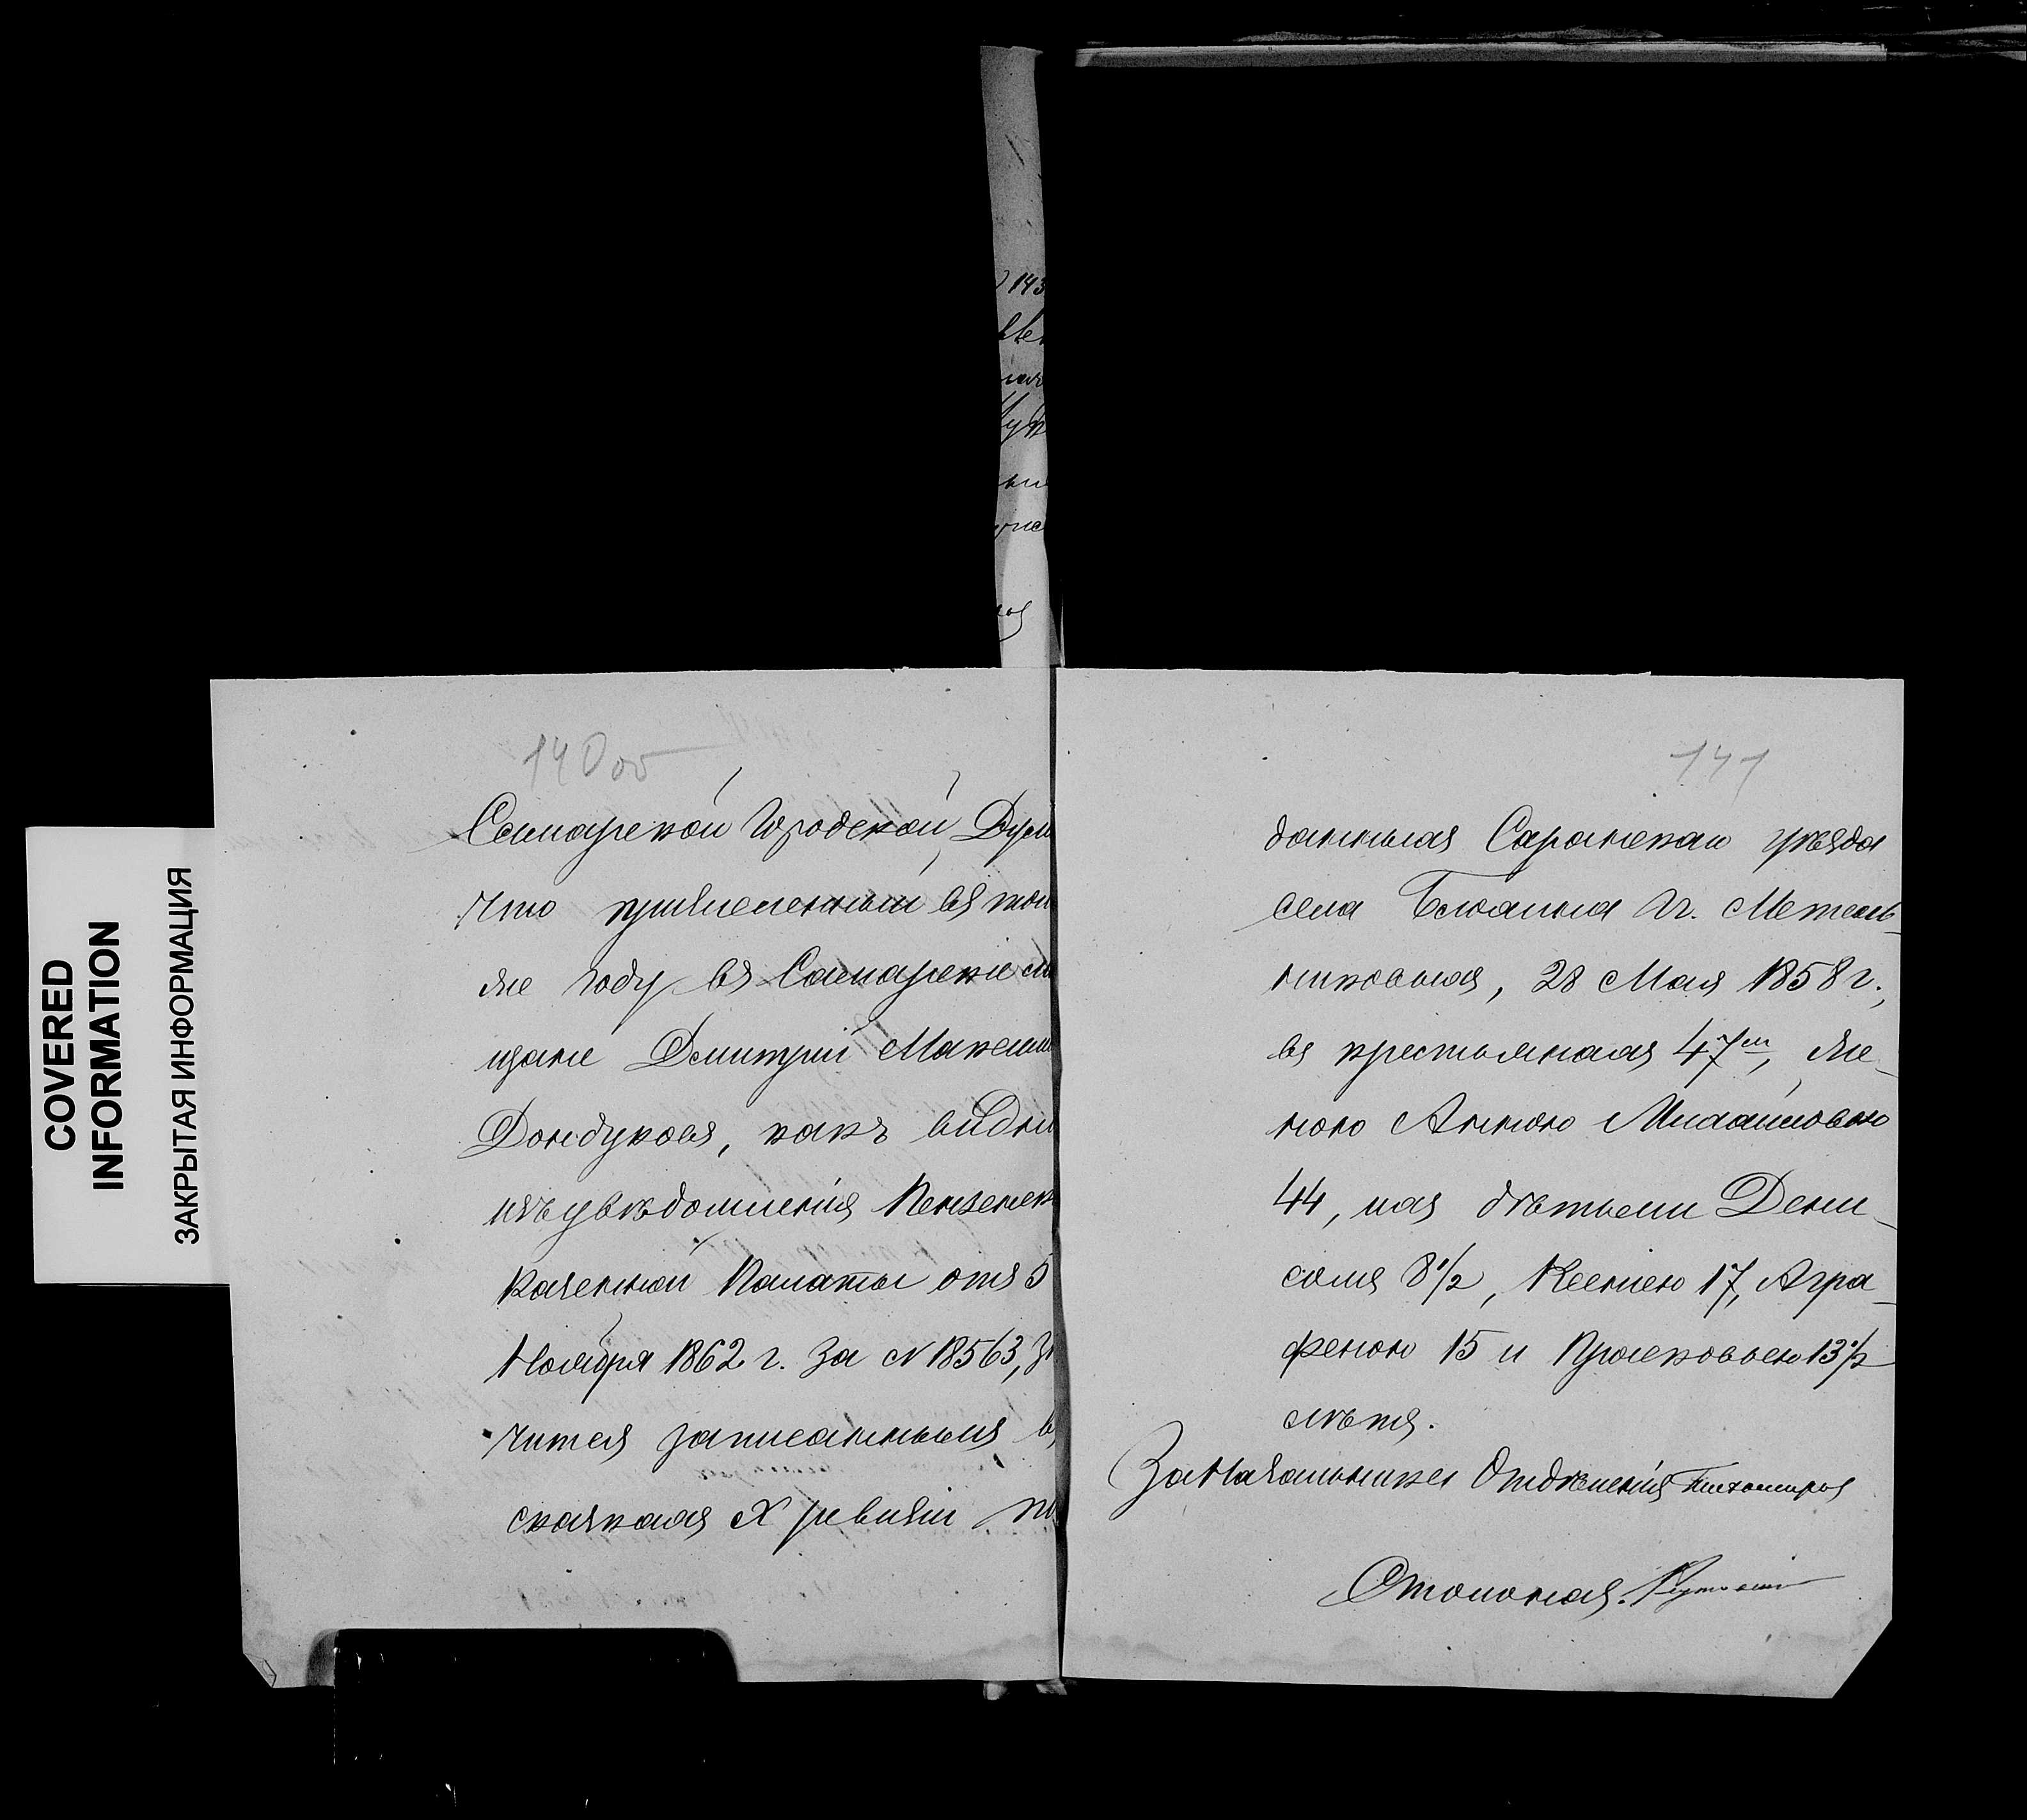 COVERED
INFORMATION
ЗАКРЫТАЯ ИНФОРМАЦИЯ
143
140 об
Самарской Городской Дум
что причисленный въ том
же году въ Самарскіе мѣ
щане Дмитрій Максим
Дондуковъ, какъ видно
изъ увѣдомленія Пензенск
Казенной Палаты отъ 5
Ноября 1862 г. за № 18563, зн
чится записаннымъ въ
сказкахъ X ревизіи по
141
данныхъ Саранскаго уѣзда
села Г. Метель-
никовыхъ, 28 Мая 1858 г.,
въ крестьянахъ 47ми, же-
ною Анною Михайловною
44, ихъ дѣтьми Дени-
сомъ 8½, Ксеніею 17, Агра-
феною 15 и Прасковьею 13½
лѣтъ.
За Начальника Отдѣленія Тихомировъ
Столонач.